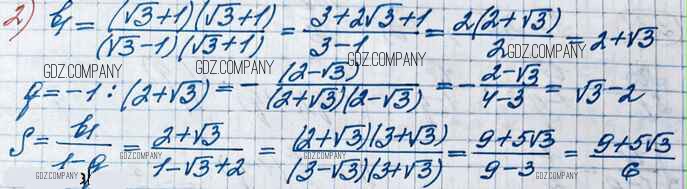 2) b₁ = (√3+1)(√3+1) / (√3−1)(√3+1) = 3+2√3+1 / 3−1 = 2(2+√3) / 2 = 2+√3
GDZ.COMPANY GDZ.COMPANY GDZ.COMPANY
q = −1 : (2+√3) = − (2−√3) / (2+√3)(2−√3) = − 2−√3 / 4−3 = √3−2
S = b₁ / 1−q = 2+√3 / 1−√3+2 = (2+√3)(3+√3) / (3−√3)(3+√3) = 9+5√3 / 9−3 = 9+5√3 / 6
GDZ.COMPANY GDZ.COMPANY GDZ.COMPANY GDZ.COMPANY GDZ.COMPANY